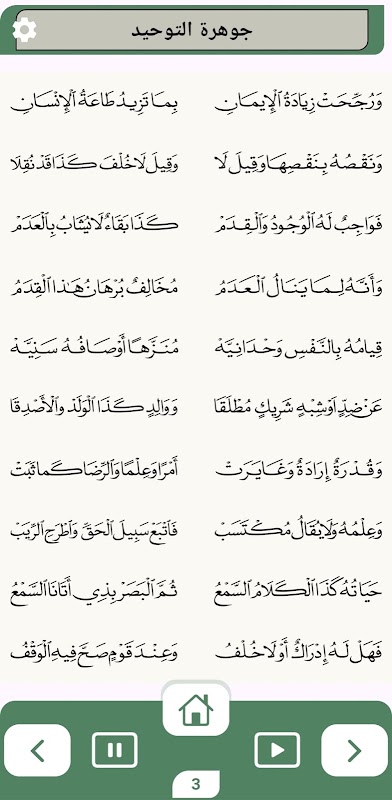 جوهرة التوحيد
وَرُجِّحَتْ زِيَادَةُ الْإِيمَانِ بِمَا تَزِيدُ طَاعَةُ الْإِنْسَانِ
وَنَقْصُهُ بِنَقْصِهَا وَقِيلَ لَا وَقِيلَ لَا خُلْفَ كَذَا قَدْ نُقِلَا
فَوَاجِبٌ لَهُ الْوُجُودُ وَالْقِدَمْ كَذَا بَقَاءٌ لَا يُشَابُ بِالْعَدَمْ
وَأَنَّهُ لِمَا يَنَالُ الْعَدَمُ مُخَالِفٌ بُرْهَانُ هٰذَا الْقِدَمُ
قِيَامُهُ بِالنَّفْسِ وَحْدَانِيَّهْ مُنَزَّهًا أَوْصَافُهُ سَنِيَّهْ
عَنْ ضِدٍّ اَوْ شِبْهٍ شَرِيكٍ مُطْلَقَا وَوَالِدٍ كَذَا الْوَلَدْ والْأَصْدِقَا
وَقُدْرَةٌ إِرَادَةٌ وَغَايَرَتْ أَمْرًا وَعِلْمًا وَالرِّضَا كَمَا ثَبَتْ
وَعِلْمُهُ وَلَا يُقَالُ مُكْتَسَبْ فَاتْبَعْ سَبِيلَ الْحَقِّ وَاطْرَحِ الرِّيَبْ
حَيَاتُهُ كَذَا الْكَلَامُ السَّمْعُ ثُمَّ الْبَصَرْ بِذِي أَتَانَا السَّمْعُ
فَهَلْ لَهُ إِدْرَاكٌ أَوْ لَا خُلْفُ وَعِنْدَ قَوْمٍ صَحَّ فِيهِ الْوَقْفُ
3